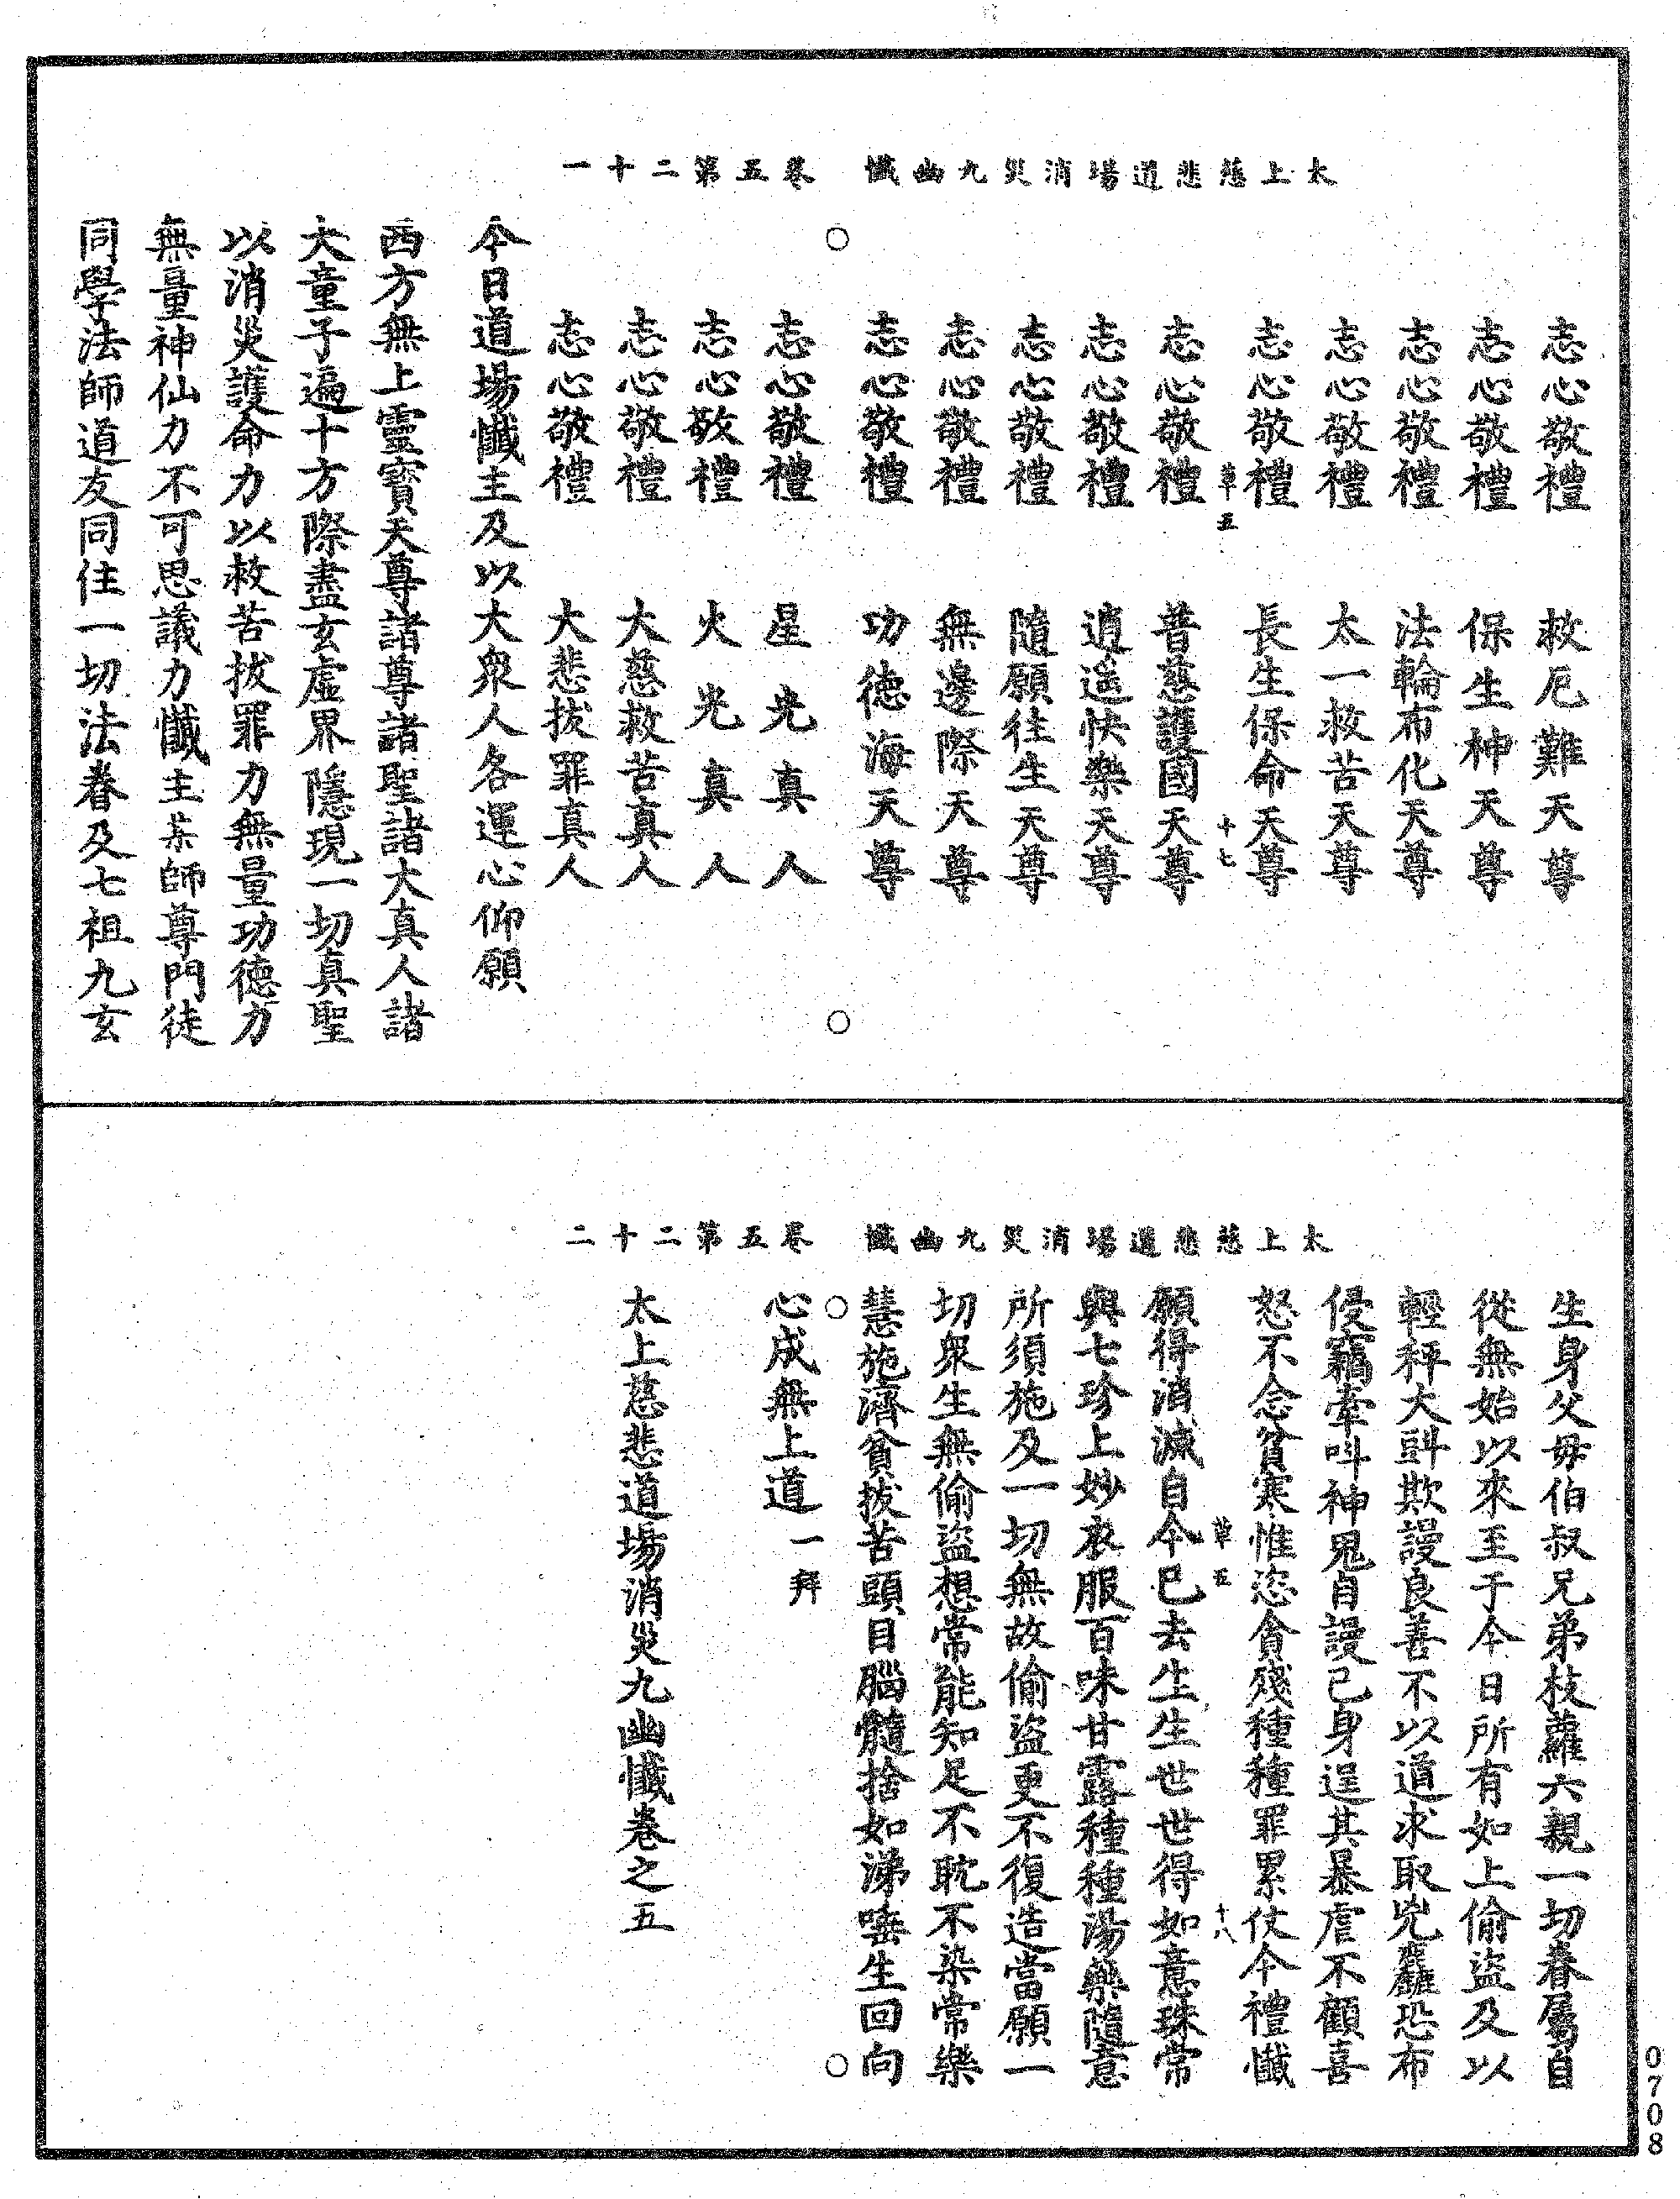 太上慈悲道場消災九幽懺　卷五第二十一
志心敬禮　救厄難天尊
志心敬禮　保生神天尊
志心敬禮　法輪布化天尊
志心敬禮　太一救苦天尊
志心敬禮　長生保命天尊
草五　十七
志心敬禮　普慈護國天尊
志心敬禮　逍遙快樂天尊
志心敬禮　隨願往生天尊
志心敬禮　無邊際天尊
志心敬禮　功德海天尊
志心敬禮　星光真人
志心敬禮　火光真人
志心敬禮　大慈救苦真人
志心敬禮　大悲拔罪真人
今日道場懺主及以大衆人各運心仰願
西方無上靈寳天尊諸尊諸聖諸大真人諸
大童子遍十方際盡玄虛界隱現一切真聖
以消災護命力以救苦拔罪力無量功德力
無量神仙力不可思議力懺主某師尊門徒
同學法師道友同住一切法眷及七祖九玄
太上慈悲道場消災九幽懺　卷五第二十二
生身父母伯叔兄弟枝蘿六親一切眷屬自
從無始以來至于今日所有如上偷盜及以
輕秤大㪷欺謾良善不以道求取兇麤恐布
侵竊牽呌神鬼自謾己身逞其暴虐不顧喜
怒不念貧寒惟恣貪殘種種罪累仗今禮懺
草五　十八
願得消滅自今已去生生世世得如意珠常
與七珍上妙衣服百味甘露種種湯藥隨意
所須施及一切無故偷盜更不復造當願一
切衆生無偷盜想常能知足不躭不染常樂
慧施濟貧拔苦頭目腦髓捨如涕唾生回向
心成無上道　一拜
太上慈悲道場消災九幽懺卷之五
0708